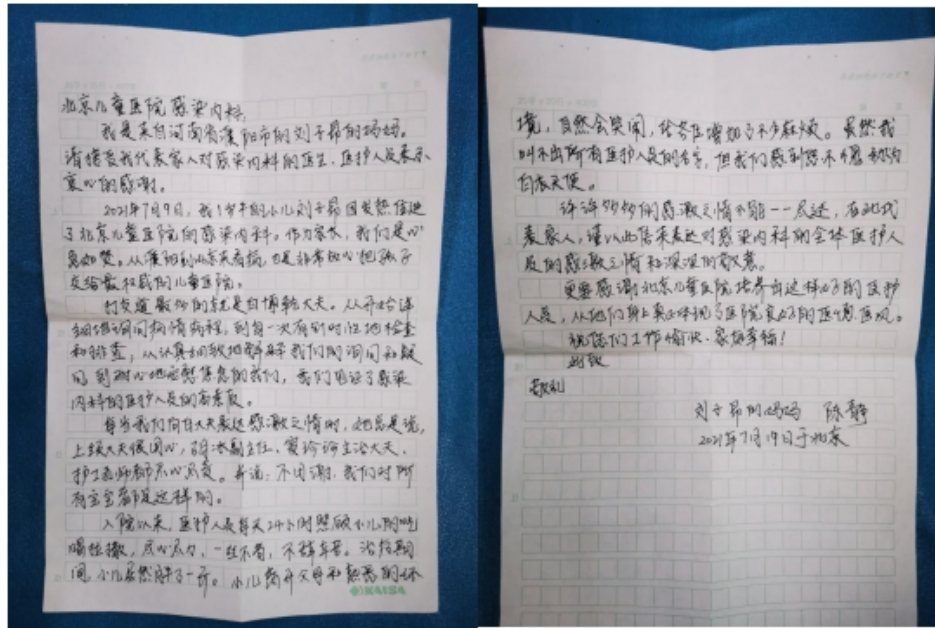 北京儿童医院感染内科:
我是来自河南省濮阳市的刘子昂的妈妈。
请接受我代表家人对感染内科的医生、医护人员表示
衷心的感谢。
2021年7月9日,我1岁半的小儿刘子昂因发热住进
了北京儿童医院的感染内科。作为家长,我们是心
急如焚。从濮阳到北京来看病,也是非常放心把孩子
交给最权威的儿童医院。
打交道最多的就是白博乾大夫。从开始详
细地询问病情病程,到每一次有针对性地检查
和排查,从认真细致地解释我们的询问和疑
问,到耐心地安慰焦急的我们,我们见证了感染
内科的医护人员的高素质。
每当我们向白大夫表达感激之情时,她总是说,
上级大夫很用心,胡冰副主任,窦珍珍主治大夫、
护士老师都尽心尽责。并说:不用谢,我们对所
有宝宝都是这样的。
入院以来,医护人员每天24小时照顾小儿的吃
喝拉撒,尽心尽力,一丝不苟,不辞辛苦。治疗期
间,小儿居然胖了一斤。小儿离开父母和熟悉的环
KAISA
境,自然会哭闹,给各位增加了不少麻烦。虽然我
叫不出所有医护人员的名字,但我们感到您不愧称为
白衣天使。
许许多多的感激之情不能一一尽述,在此我代
表家人,谨以此信来表达对感染内科的全体医护人
员的感激之情和深深的敬意。
更要感谢北京儿童医院培养出这样好的医护
人员,从他们身上真正体现了医院良好的医德医风。
祝您们工作愉快、家庭幸福!
此致
敬礼
刘子昂的妈妈 陈静
2021年7月19日于北京